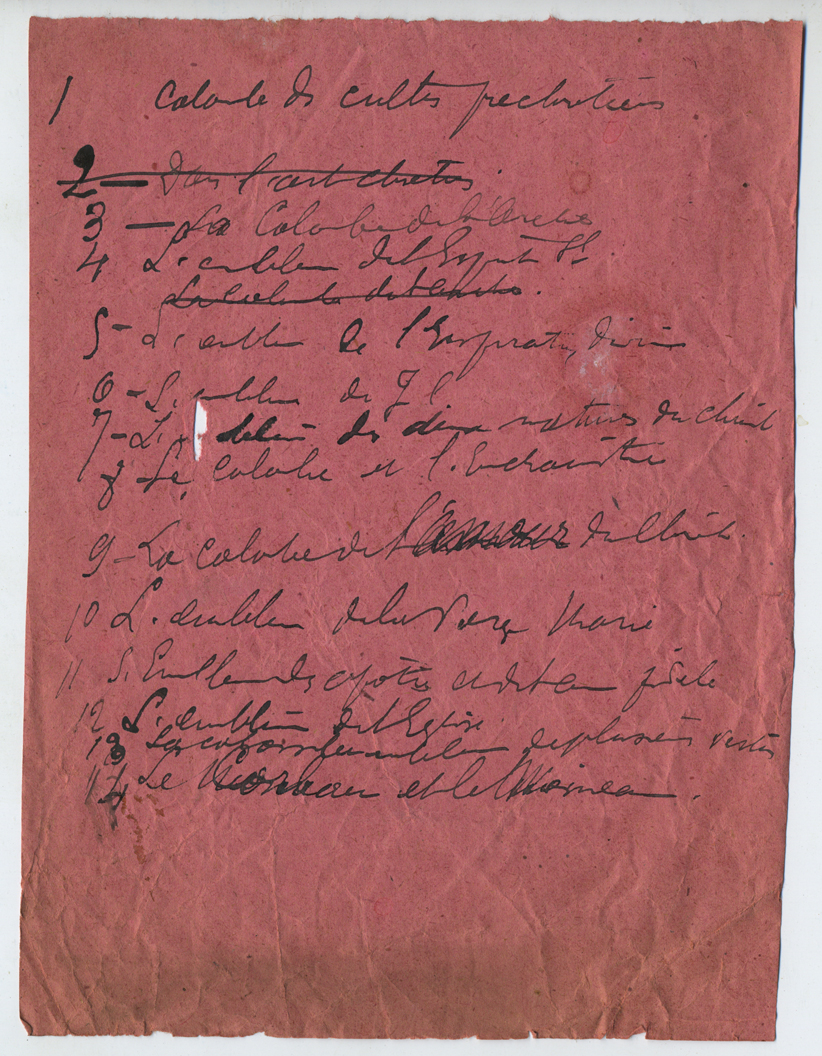 1 Colombe des cultes prechretiens
2 — Dans l'art chretien.
3 — La Colombe de l'Arche
4 L'emblem de l'Esprit St
La Colombe de l'arche.
5 - L'emblem de l'Inspiration divine
6 - L'emblem de J C
7 - L'emblem des deux natures du Christ
8 - La Colombe et l'Eucharistie
9 - La colombe de l'amour du Christ.
10 L'emblem de la Vierge Marie
11 L'Emblem des apotres et de l'ame fidele
12 L'emblem de l'Eglise.
13 emblem de plusieurs vertus
14 Le et le Moineau.